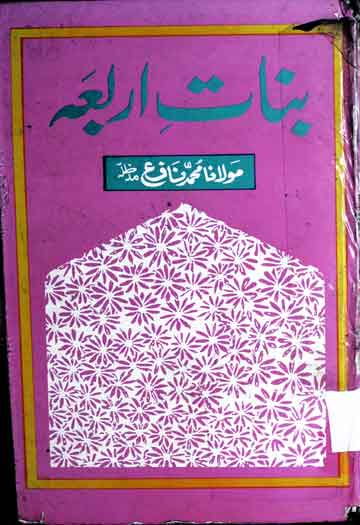 بناتِ اربعہ
مولانا محمد نافع مدظلہ